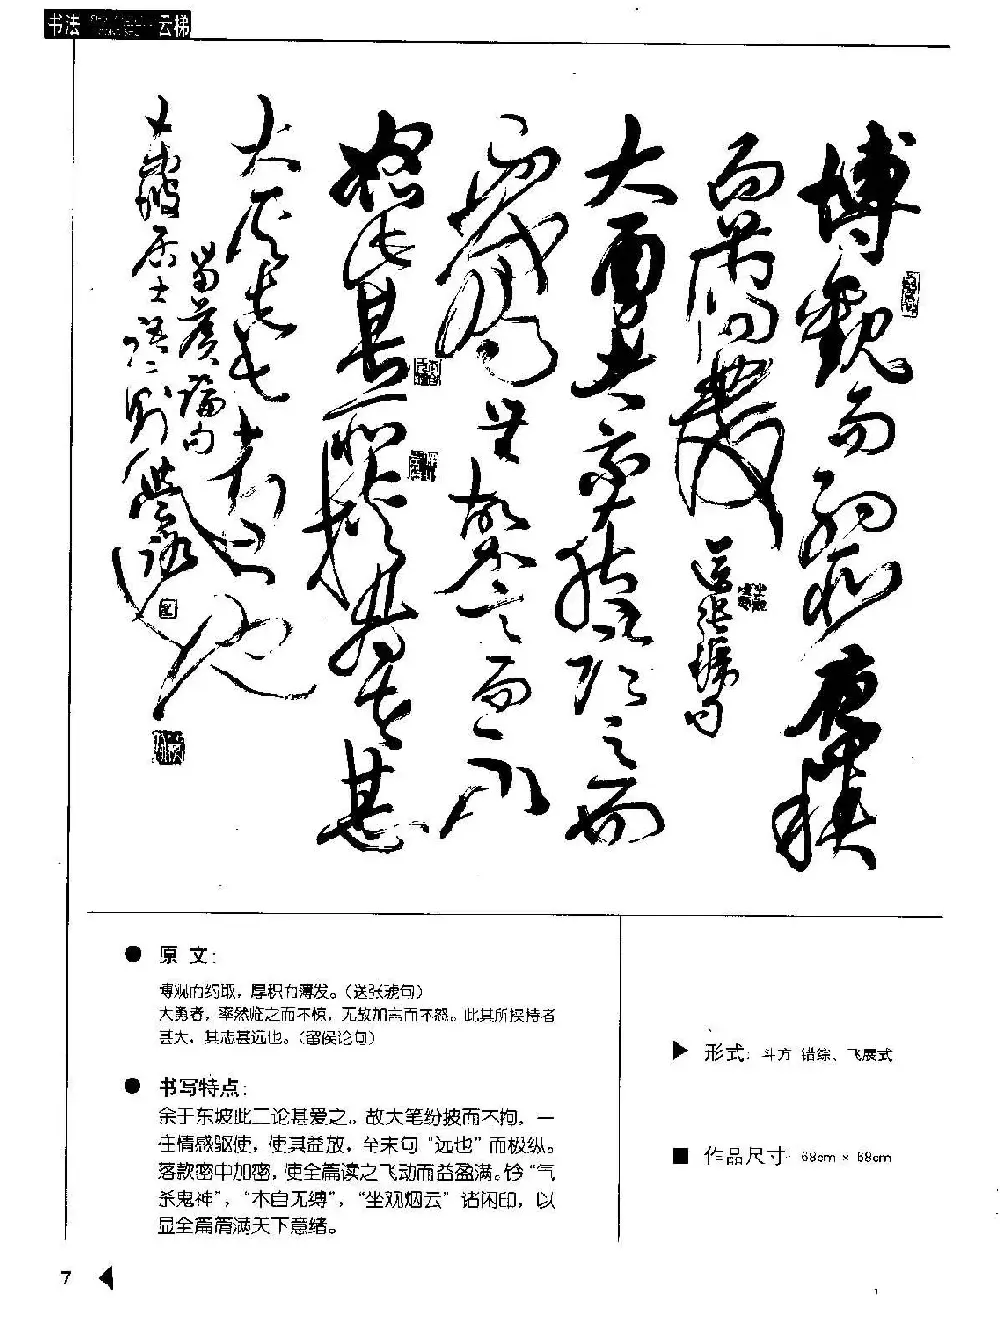 书法 云梯
博观而约取厚积
而薄发 送张琥句
大勇者卒然临之而
不惊无故加之而不
怒此其所挟持者甚
大其志甚远也
留侯论句
东坡居士语
原文：
博观而约取，厚积而薄发。（送张琥句）
大勇者，率然临之而不惊，无故加之而不怒。此其所挟持者
甚大，其志甚远也。（留侯论句）
书写特点：
余于东坡此二论甚爱之。故大笔纷披而不拘，一
任情感驱使，使其益放，至末句“远也”而极纵。
落款密中加密，使全篇读之飞动而益盈满。钤“气
杀鬼神”，“木自无缚”，“坐观烟云”诸闲印，以
显全篇霄满天下意绪。
形式：斗方 错综、飞展式
作品尺寸：68cm × 68cm
7